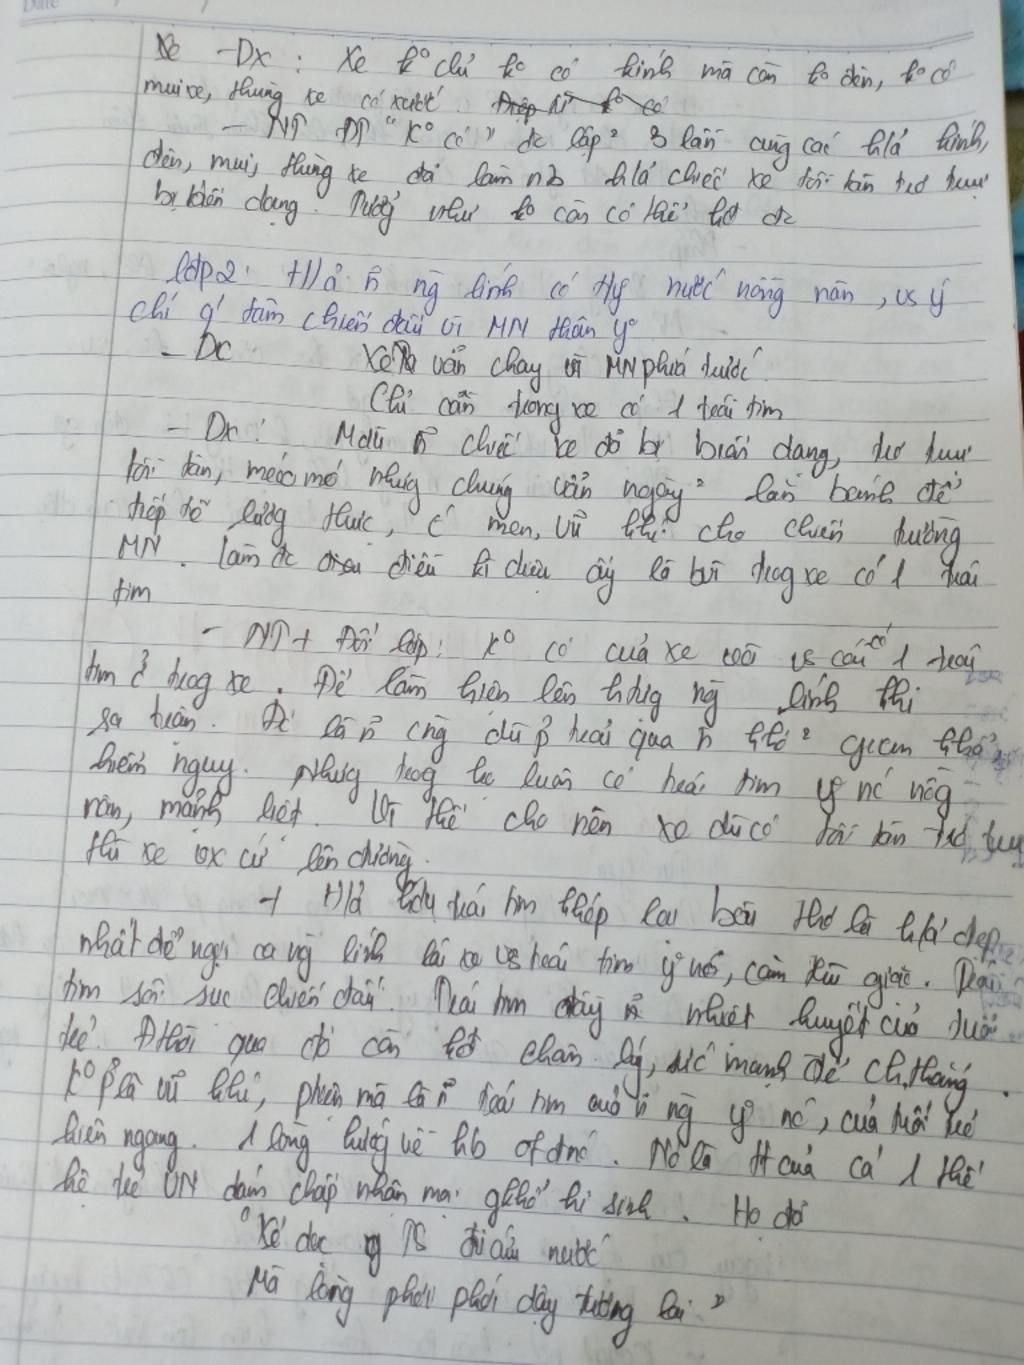 Xe -Dx : Xe kº chỉ kº có kính mà còn kº đèn, kº có
mui xe, thùng xe có xước.
- NT ĐT "Kº có" đc lặp² 3 lần cùng các h/á kính,
đèn, mui, thùng xe đã làm h/á chiếc xe tồi tàn trơ trụi
bị biến dạng. Tưởng như kº còn có thể hđ đc
Lớp 2: H/ả ng lính có ty nước nồng nàn, vs ý
chí q' tâm chiến đấu vì MN thân yº
- DC Xe vẫn chạy vì MN phía trước
Chỉ cần trong xe có 1 trái tim
- Dx : Mdù chiếc xe đó bị biến dạng, trơ trụi
tồi tàn, méo mó nhưg chúng vẫn ngày² lăn bánh để
tiếp tế lương thực, men, vũ khí cho chiến trường
MN. Làm đc điều kì diệu ấy là bởi trog xe có 1 trái
tim
- NT + Đối lập : Kº có của xe vs có 1 trái
tim ở trog xe. Để làm hiện lên hdug ng lính thi
sa trận. là dù p trải qua khó² gian khổ,
hiểm nguy. Nhưg trog họ luôn có trái tim yº nc nồg
nàn, mãnh liệt. Vì thế cho nên xe dù có tồi tàn trơ trụi
thì xe cứ lên đường.
+ H/ả trái tim khép lại bài thơ là h/á đẹp
nhất để ngợi ca ng lính lái xe vs trái tim yº nc, căm thù giặc. Trái
tim sôi sục chiến đấu. Trái tim đầy nhiệt huyết của tuổi
trẻ. Đthời qua đó còn hđ chân lý, sức mạnh để ch.thắng
Kº p là vũ khí, mà là trái tim ng yº nc, của tuổi trẻ
hiên ngang. 1 lòng hướg về hb of đnc. Nó là của cả 1 thế
hệ trẻ VN dám chấp nhận mọi gkhổ hi sinh. Họ đã
"Xẻ dọc TS đi cứu nước
Mà lòng phơi phới dậy tương lai"